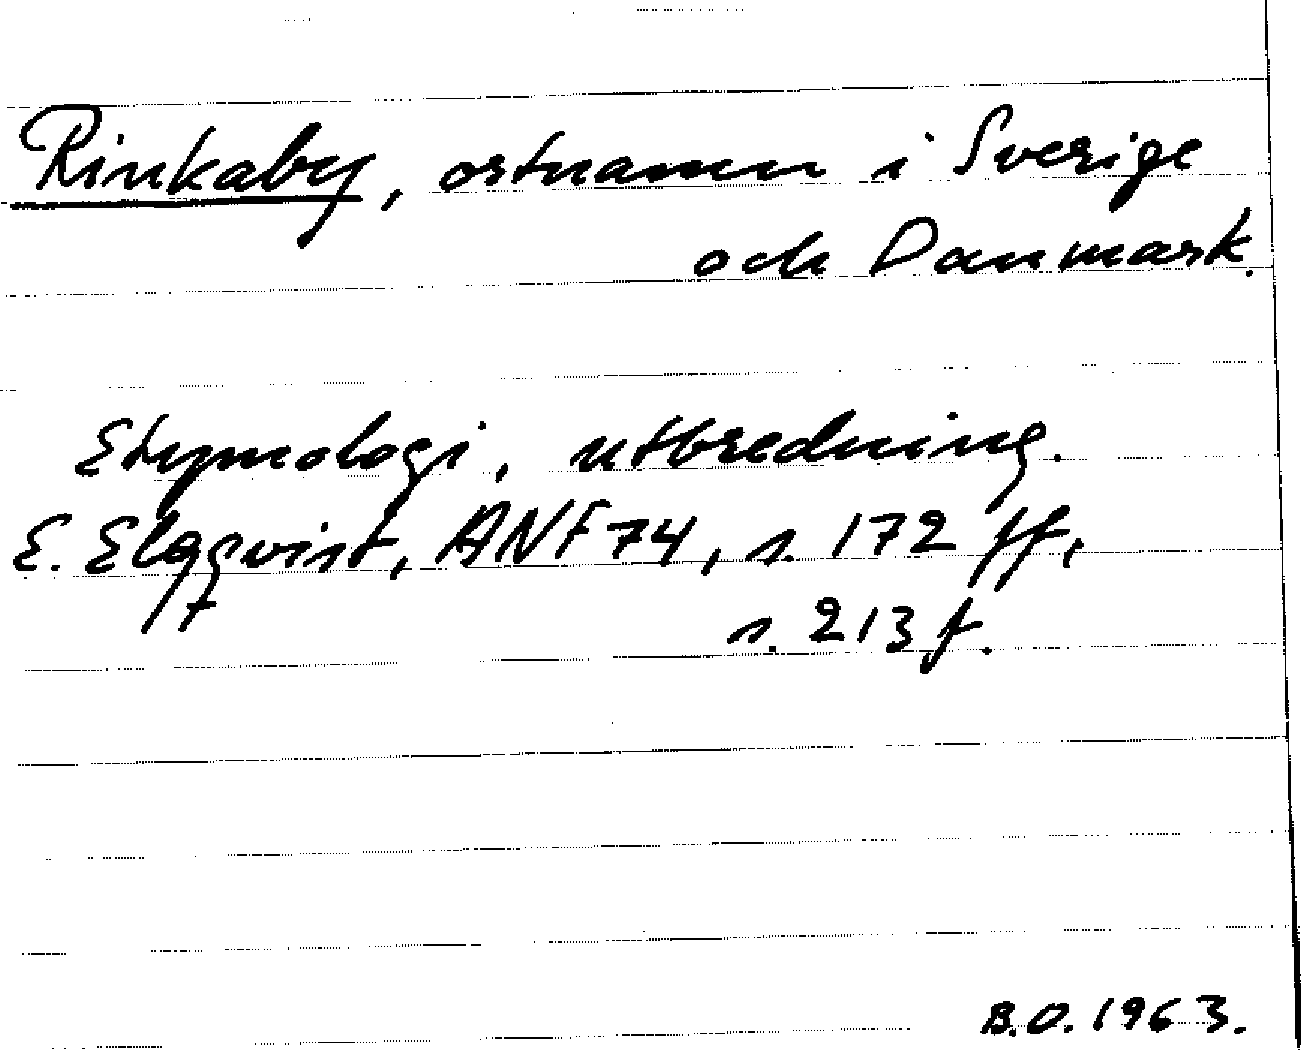 Rinkaby, ortnamn i Sverige
och Danmark.
Etymologi, utbredning.
E. Elgqvist, ANF 74, s. 172 ff,
s. 213 f.
B.O. 1963.